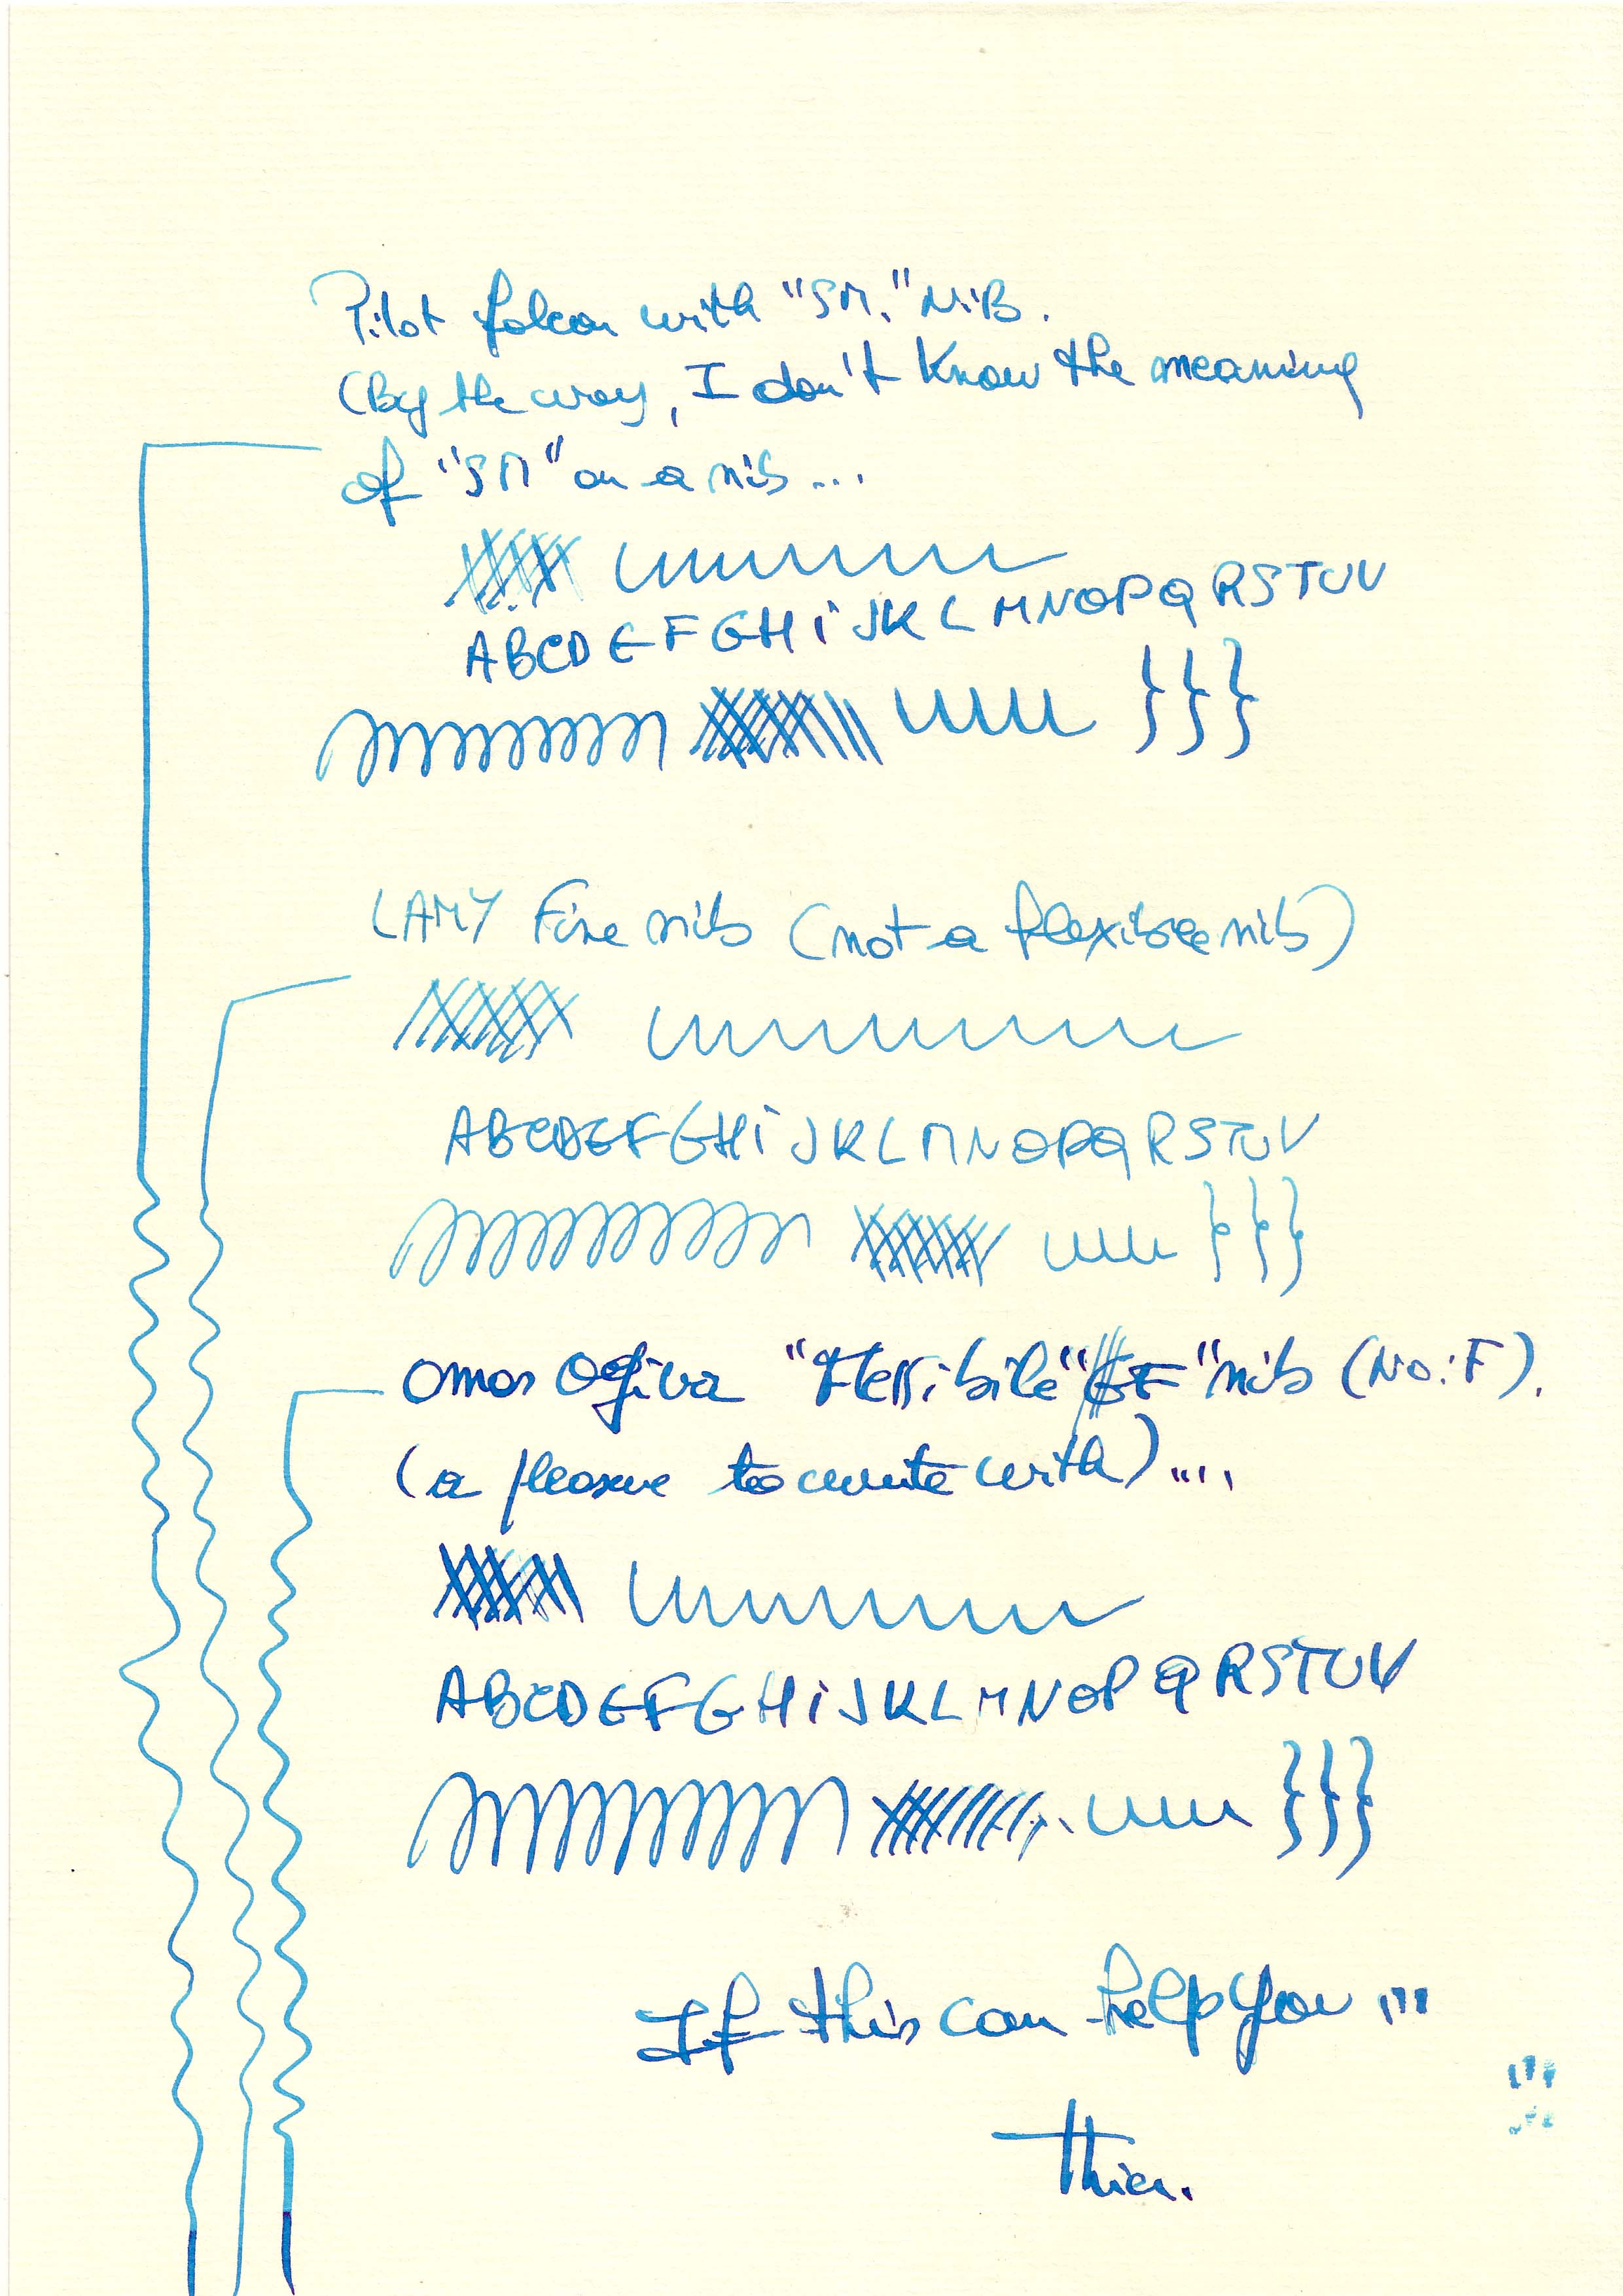 Pilot falcon with "SM." NiB.
(By the way, I don't know the meaning
of "SM" on a nib...
ABCDEFGHiJKLMNOPQRSTUV
LAMY Fine nib (not a flexible nib)
ABCDEFGHiJKLMNOPQRSTUV
Omas Ogiva "Flessibile" "nib (No:F).
(a pleasure to write with)....
ABCDEFGHiJKLMNOPQRSTUV
If this can help you ...